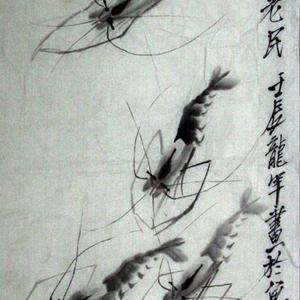 老民 壬辰龍年畫於